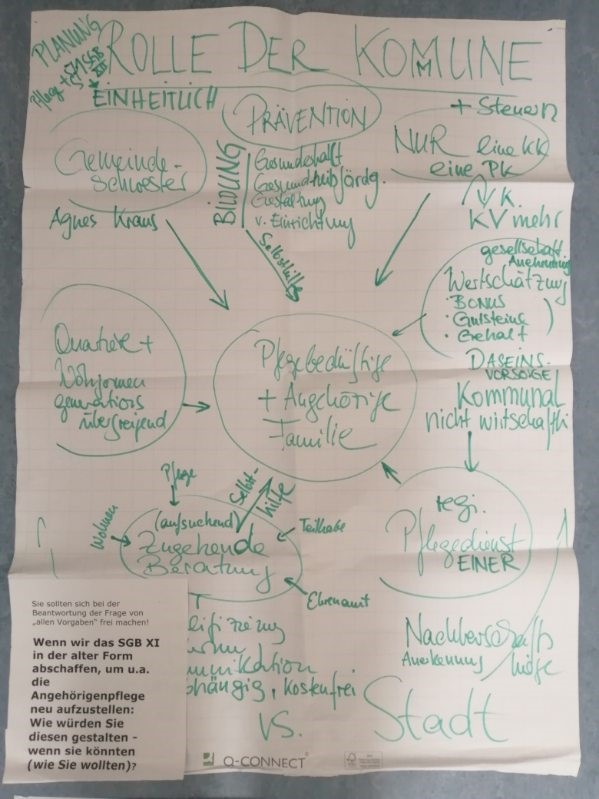 PLANUNG
Pflege +
ROLLE DER KOMMUNE
EINHEITLICH
PRÄVENTION
+ Steuern
Gemeinde-
schwester
Agnes Kraus
BILDUNG
Gesundshaft
Gesundheitsfördg.
Gestaltung
v. Einrichtung
Selbsthilfe
NUR eine KK
eine PK
K.
KV mehr
gesellschaft.
Anerkennung
Wertschätzung
BONUS
· Gutsteine
· Gehalt
DASEINS-
VORSORGE
Kommunal
nicht wirtschaftl.
Quartier +
Wohnformen
generations
übergreifend
Pflegebedürftige
+ Angehörige
Familie
Pflege
Selbst-
hilfe
Wohnen
(aufsuchend)
Zugehende
Beratung
Teilhabe
Ehrenamt
regi.
Pflegedienst
EINER
Nachberschafts
höfe
Anerkennung
lifizierung
munikation
bhängig, kostenfrei
vs. Stadt
Sie sollten sich bei der
Beantwortung der Frage von
„allen Vorgaben" frei machen!
Wenn wir das SGB XI
in der alter Form
abschaffen, um u.a.
die
Angehörigenpflege
neu aufzustellen:
Wie würden Sie
diesen gestalten -
wenn sie könnten
(wie Sie wollten)?
Q-CONNECT®